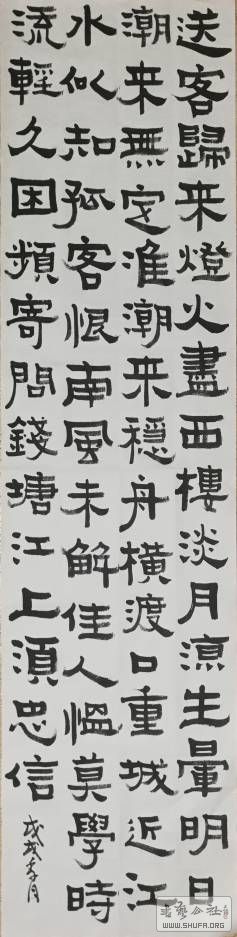 送客歸来燈火盡西樓淡月凉生暈明日
潮来無定准潮来穩舟横渡口重城近江
水似知孤客恨南風未解佳人愠莫學時
流輕久困頻寄問錢塘江上須忠信
戊戌月
書藝公社
WWW.SHUFA.ORG